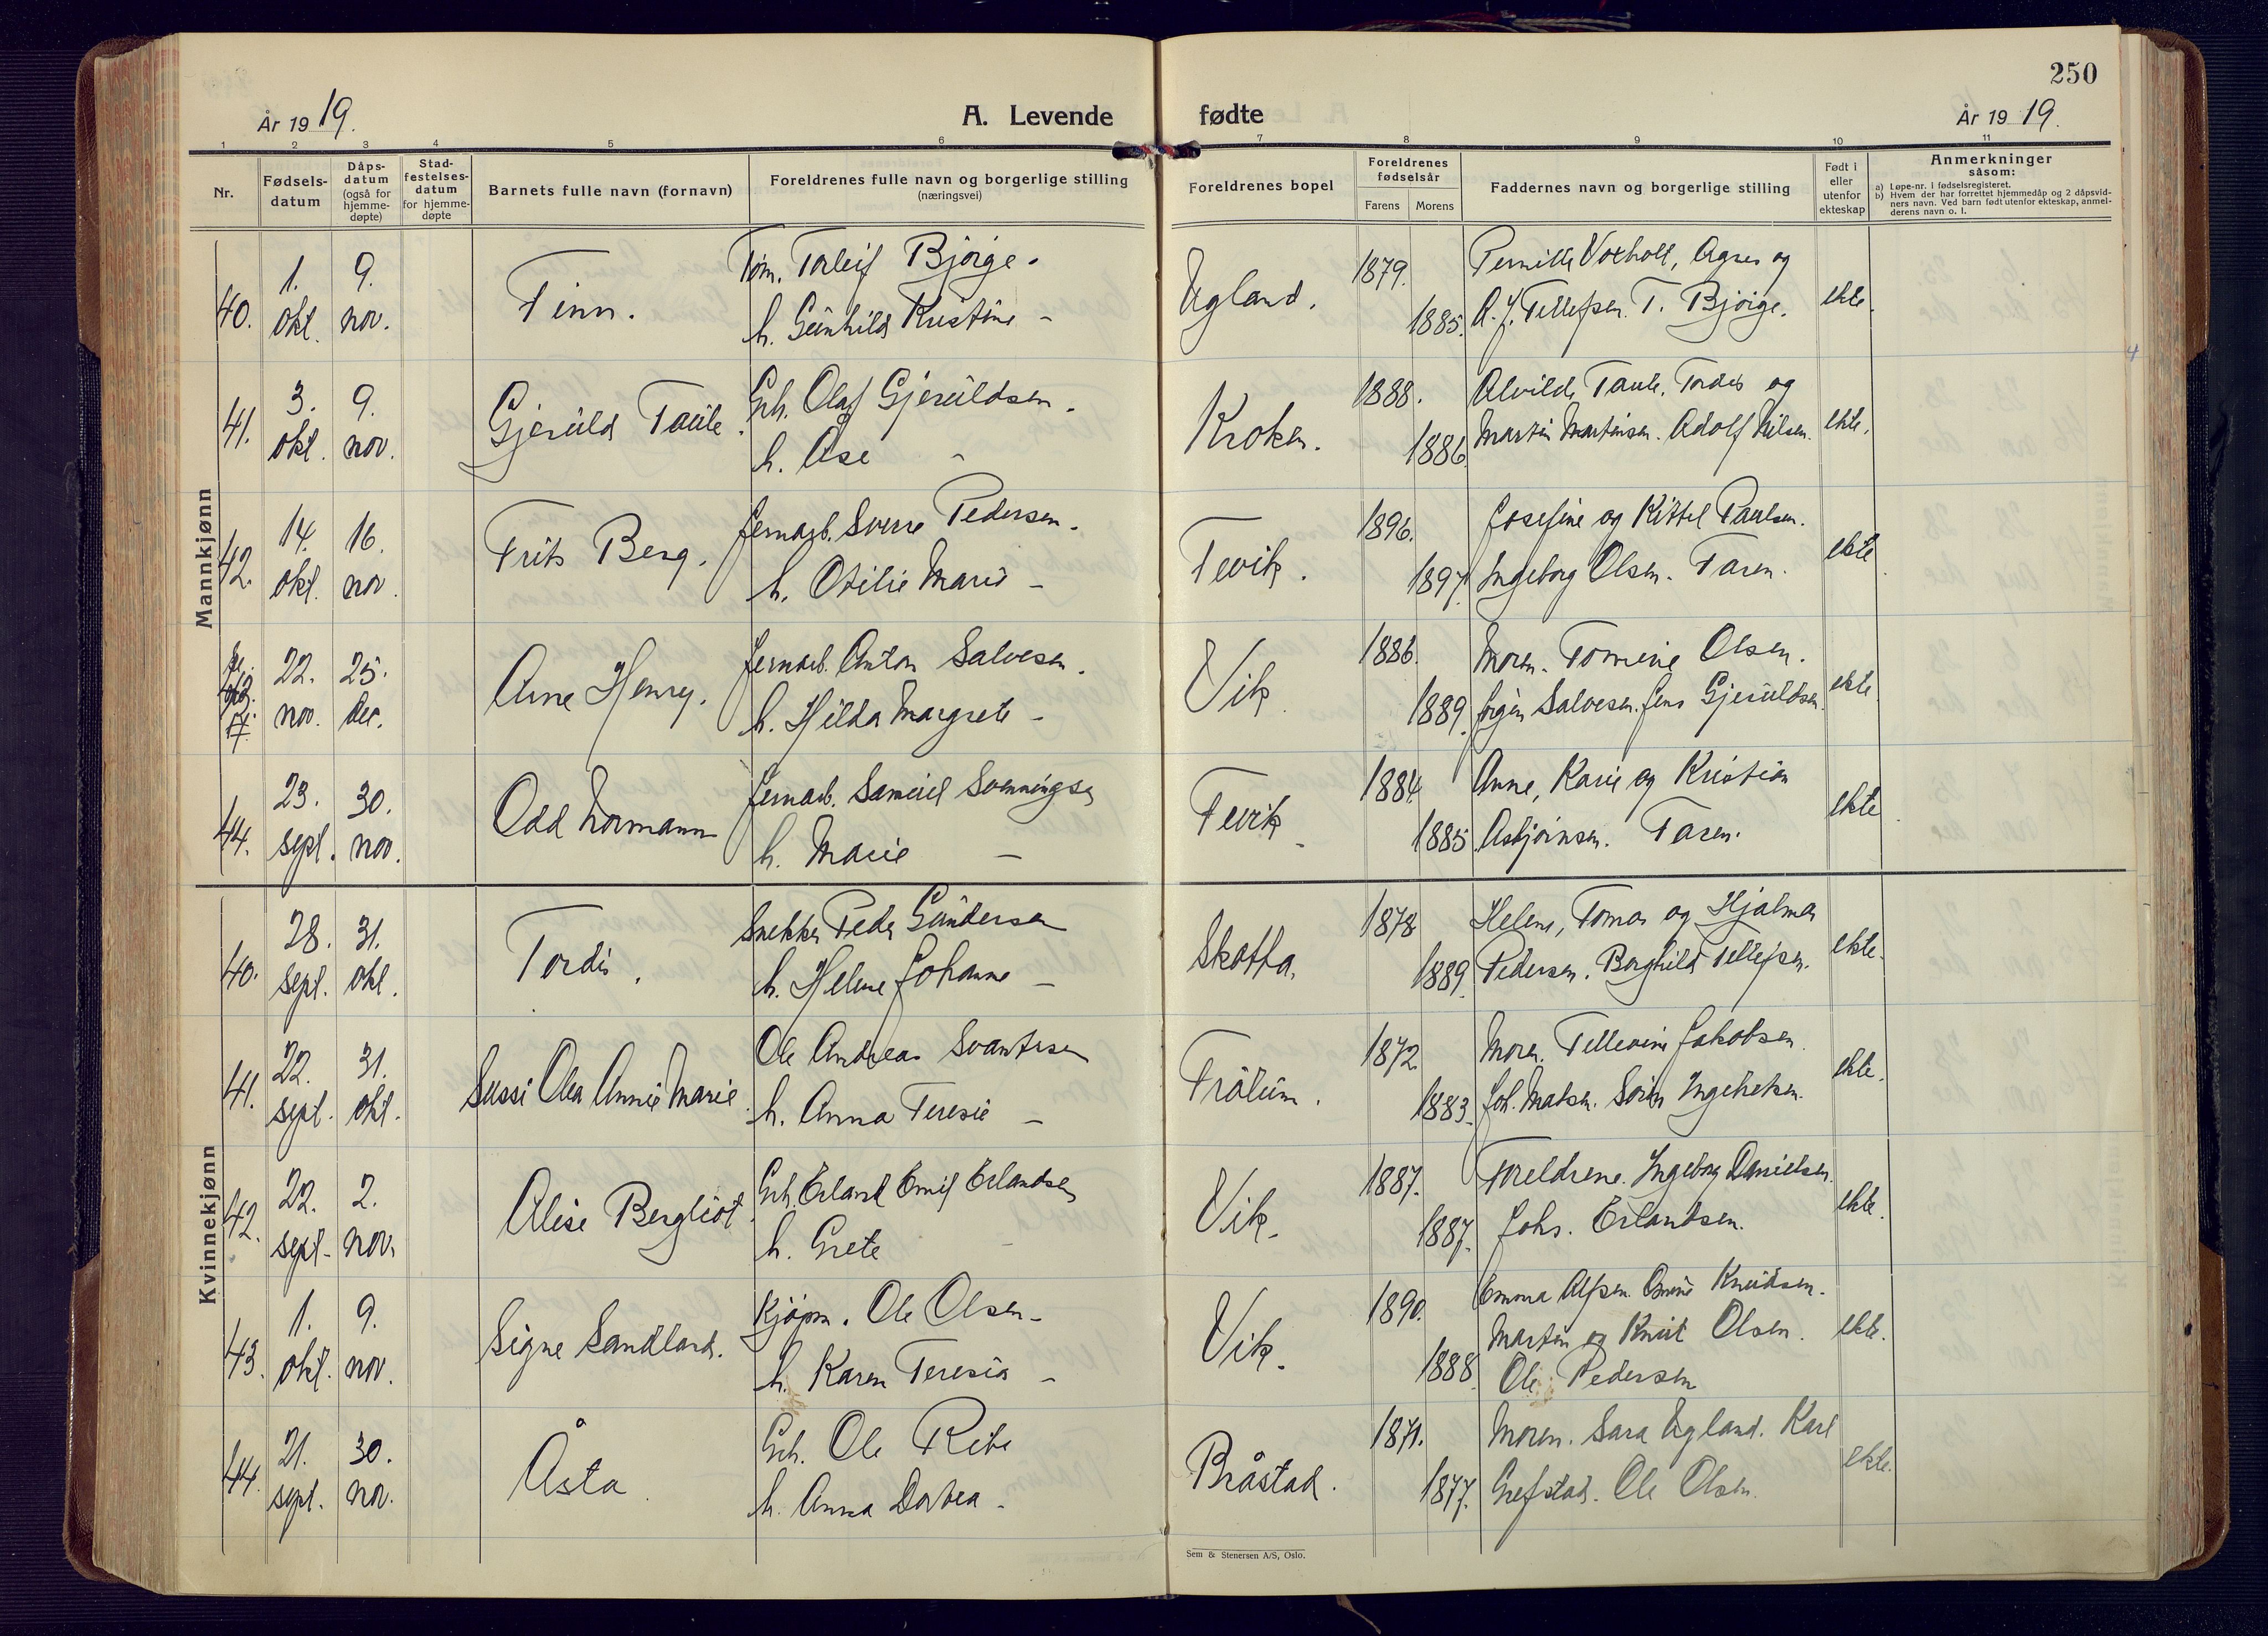 250
År 1919.
A. Levende fødte
År 1919.
1 2 3 4 5 6 7 8 9 10 11
Nr.
Fødsels-
datum
Dåps-
datum
(også for
hjemme-
døpte)
Stad-
festelses-
datum
for hjemme-
døpte
Barnets fulle navn (fornavn)
Foreldrenes fulle navn og borgerlige stilling
(næringsvei)
Foreldrenes bopel
Foreldrenes
fødselsår
Farens Morens
Faddernes navn og borgerlige stilling
Født i
eller
utenfor
ekteskap
Anmerkninger
såsom:
a) Løpe-nr. i fødselsregisteret.
b) Hvem der har forrettet hjemmedåp og 2 dåpsvid-
ners navn. Ved barn født utenfor ekteskap, anmel-
derens navn o. l.
Mannkjønn
40. 1. okt. 9. nov. Finn.
Tøm. Torleif Bjørge.
h. Gunhild Kristine -
Ugland. 1879. 1885.
Pernille Voxholt, Agnes og
A. J. Tellefsen. T. Bjørge.
ekte.
41. 3. okt. 9. nov. Gjeruld Taule.
Grb. Olaf Gjeruldsen.
h. Åse -
Kroken. 1888. 1886.
Alvilde Taule, Tordis og
Martin Martinsen. Adolf Nilsen.
ekte.
42. 14. okt. 16. nov. Frits Berg.
Jernarb. Sverre Pedersen.
h. Otilie Marie -
Fevik. 1896. 1897.
Josefine og Kittel Paulsen.
Ingeborg Olsen. Faren.
ekte
22. nov. 25. dec. Arne Henry.
Jernarb. Anton Salvesen.
h. Hilda Margrete -
Vik. 1886. 1889.
Moren. Tomine Olsen.
Jørgen Salvesen. Jens Gjeruldsen.
ekte.
44. 23. sept. 30. nov. Odd Normann
Jernarb. Samuel Svenningsen
h. Marie -
Fevik. 1884. 1885.
Anne, Karie og Kristian
Asbjørnsen. Faren.
ekte.
Kvinnekjønn
40. 28. sept. 31. okt. Tordis.
Snekker Peder Gundersen
h. Helene Johanne -
Skotta. 1878. 1889.
Helene, Tomas og Hjalmar
Pedersen. Borghild Tellefsen.
ekte.
41. 22. sept. 31. okt. Sussi Olea Annie Marie.
Ole Andreas Svantesen
h. Anna Teresie -
Frølum. 1872. 1883.
Moren. Tellevine Jakobsen.
Joh. Madsen. Søren Ingebretsen.
ekte.
42. 22. sept. 2. nov. Alise Bergliot.
Grb. Erland Emil Erlandsen
h. Grete -
Vik. 1887. 1887.
Foreldrene. Ingeborg Danielsen.
Johs. Erlandsen.
ekte.
43. 1. okt. 9. nov. Signe Sandland.
Kjøpm. Ole Olsen -
h. Karen Teresia -
Vik. 1890. 1888.
Emma Alfsen. Knudsen.
Martin og Knut Olsen.
Ole Pedersen
ekte.
44. 21. sept. 30. nov. Åsta.
Grb. Ole Ribe
h. Anna Dortea -
Bråstad. 1871. 1877.
Moren. Sara Ugland. Karl
Grefstad. Ole Olsen.
ekte.
Sem & Stenersen A/S, Oslo.